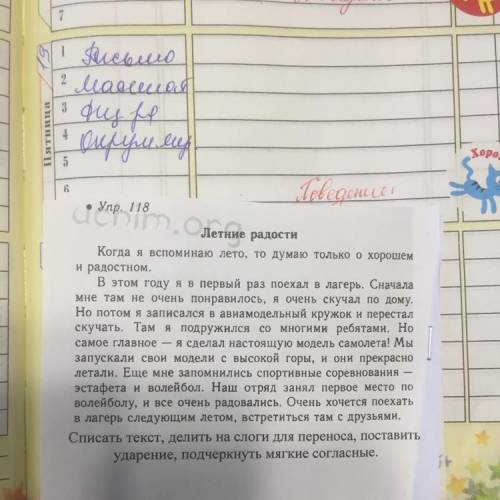 7
19
Пятница
1 Письмо
2
3 Физ ра
4 Окруж мир
5
6
Хоро
Поведение
• Упр. 118
uchim.org
Летние радости
Когда я вспоминаю лето, то думаю только о хорошем
и радостном.
В этом году я в первый раз поехал в лагерь. Сначала
мне там не очень понравилось, я очень скучал по дому.
Но потом я записался в авиамодельный кружок и перестал
скучать. Там я подружился со многими ребятами. Но
самое главное — я сделал настоящую модель самолета! Мы
запускали свои модели с высокой горы, и они прекрасно
летали. Еще мне запомнились спортивные соревнования —
эстафета и волейбол. Наш отряд занял первое место по
волейболу, и все очень радовались. Очень хочется поехать
в лагерь следующим летом, встретиться там с друзьями.
Списать текст, делить на слоги для переноса, поставить
ударение, подчеркнуть мягкие согласные.